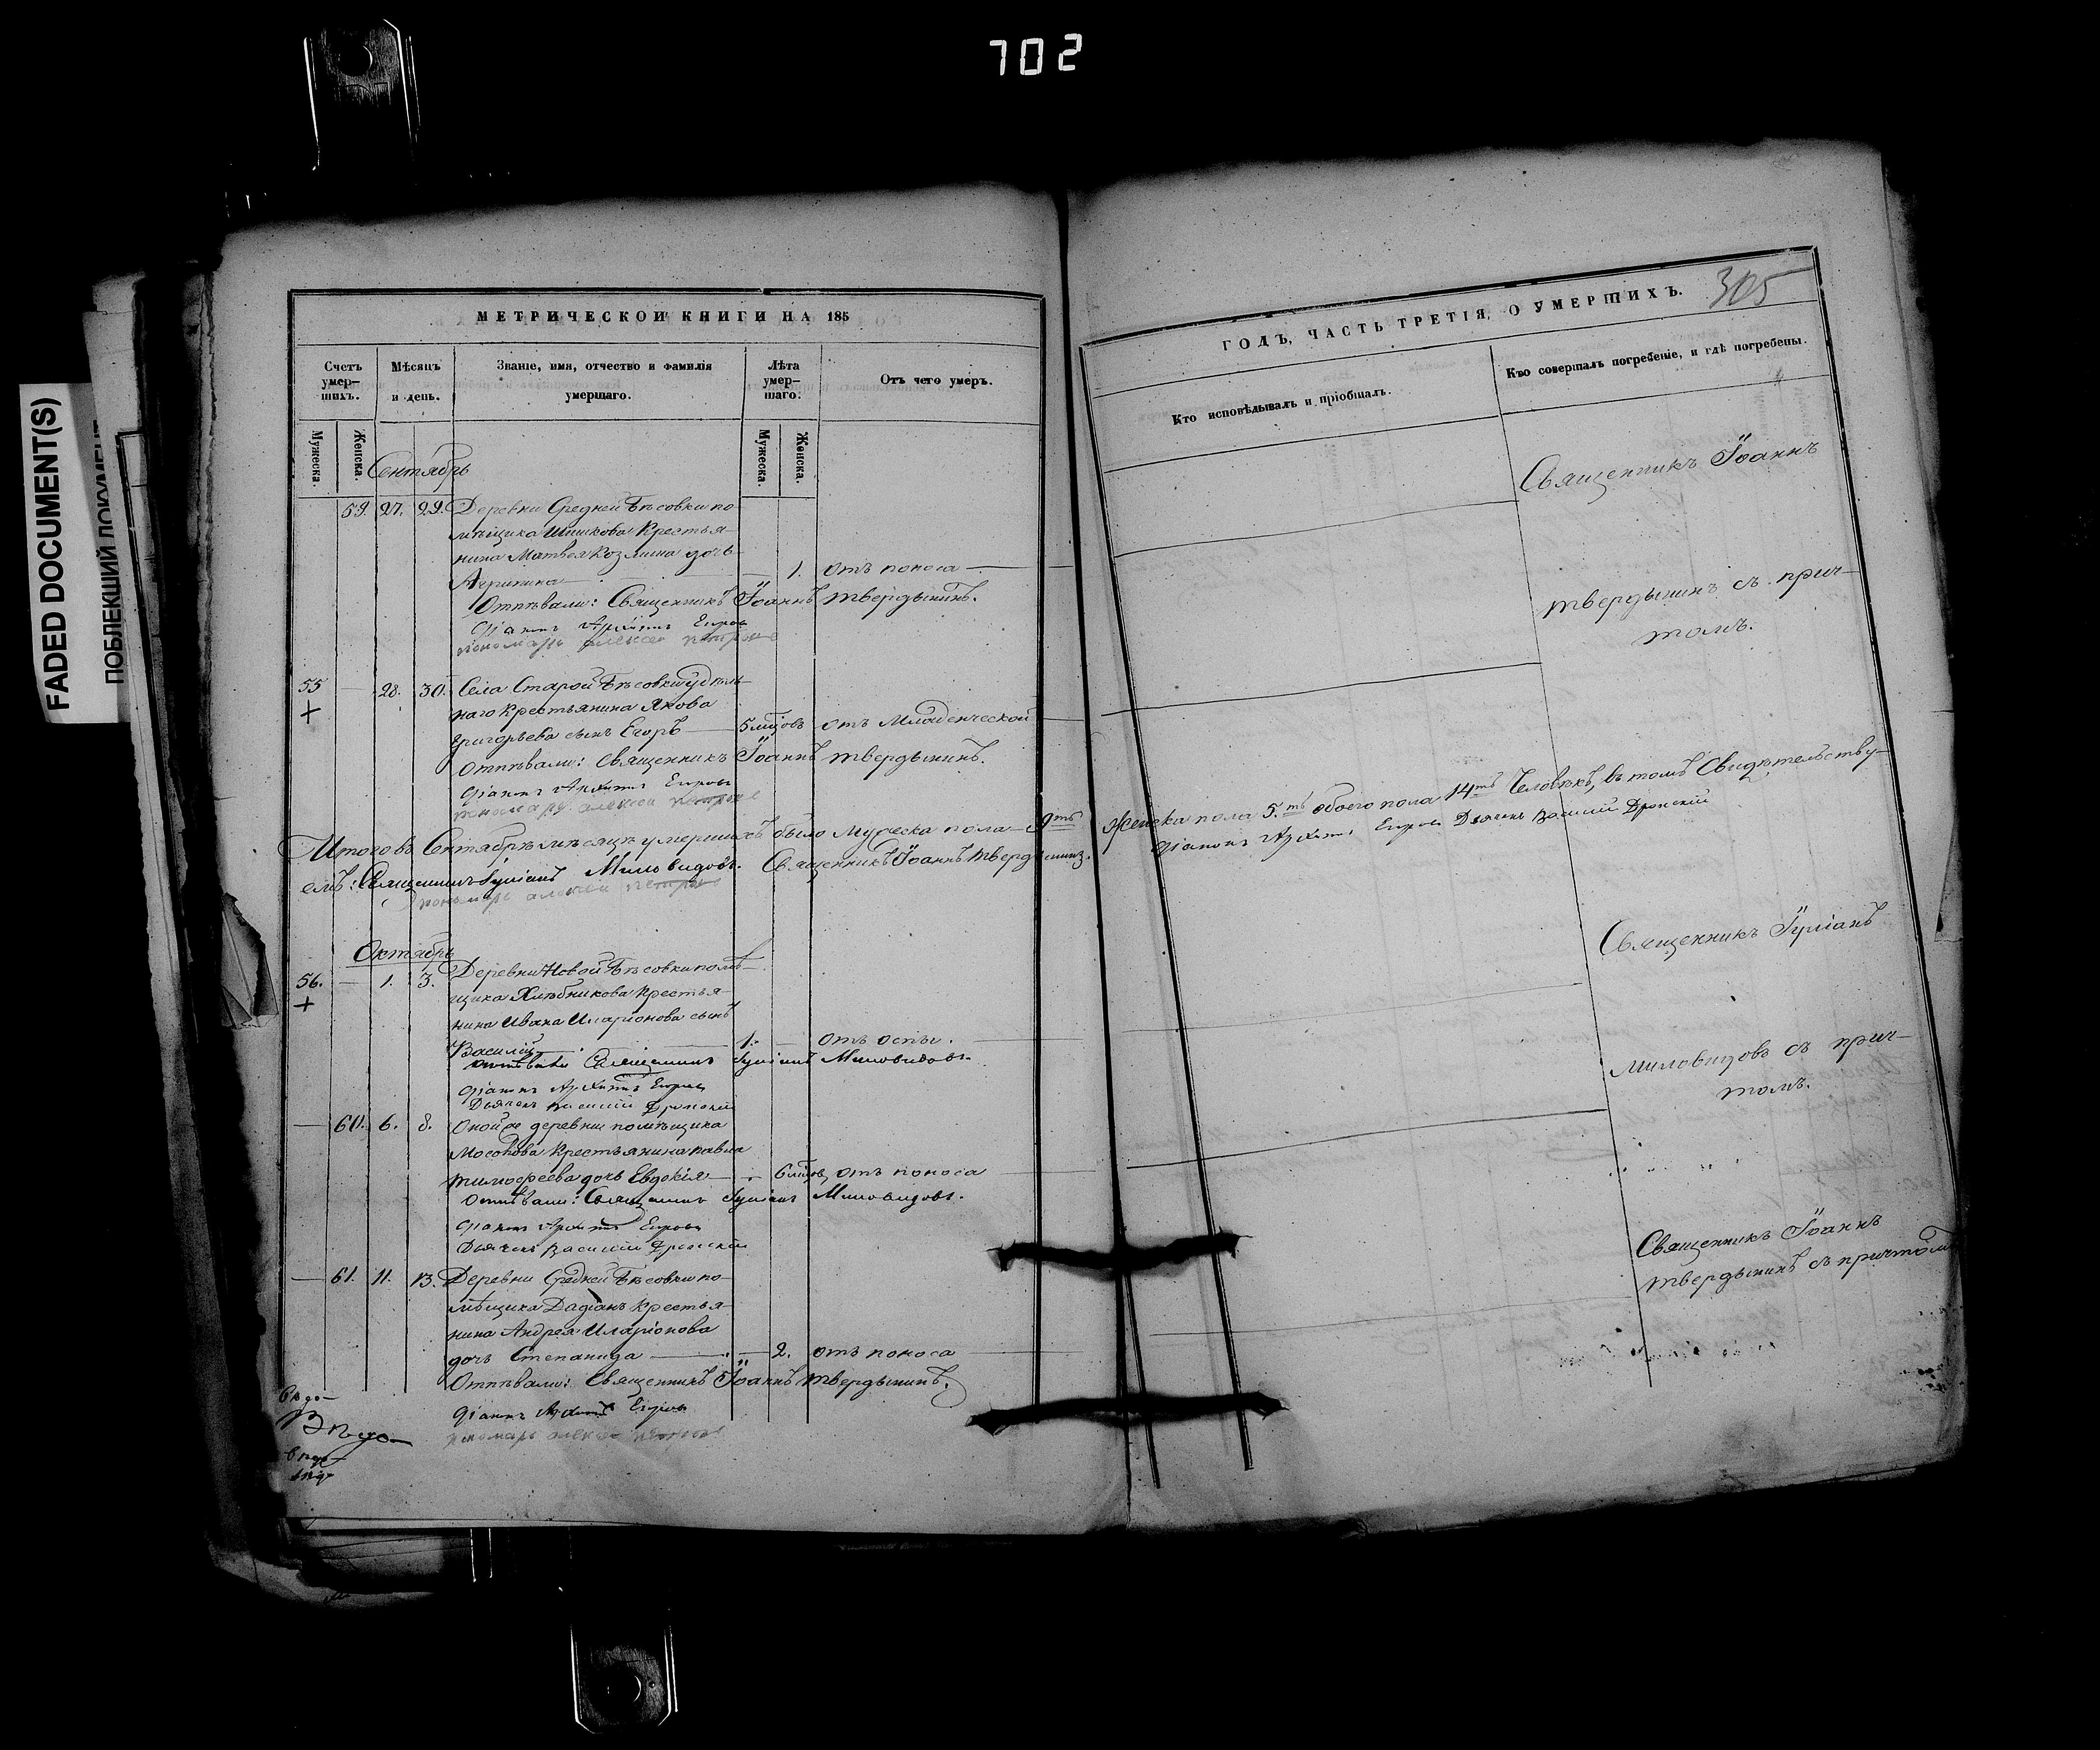 702
FADED DOCUMENT(S)
ПОБЛЕКШИЙ ДОКУМЕНТ
МЕТРИЧЕСКОЙ КНИГИ НА 185
Счетъ умер-шихъ.
Мѣсяцъ и день.
Званіе, имя, отчество и фамилія умершаго.
Лѣта умер-шаго.
Отъ чего умеръ.
Мужеска.
Женска.
Мужеска.
Женска.
Сентябрь
59. 27. 29. Деревни Средней Бѣсовки по-
мѣщика Шишкова Крестья-
нина Матвея Козмина дочь
Агрипина 1. отъ поноса
Отпѣвали: Священникъ Іоаннъ Твердынинъ.
Діаконъ Архипъ Егоровъ
пономарь алексей петровъ
55 28. 30. Села Старой Бѣсовки удѣль-
наго Крестьянина Якова
Григорьева сынъ Егоръ 5 мцовъ отъ Младенческой
Отпѣвали: Священникъ Іоаннъ Твердынинъ.
Діаконъ Архипъ Егоровъ
пономарь алексей петровъ
Итого въ Сентябрѣ мѣсяцѣ умершихъ было мужеска пола 9ть женска пола 5ть обоего пола 14ть Человѣкъ, въ томъ Свидѣтельству-
емъ: Священникъ Іуліанъ Миловидовъ. Священникъ Іоаннъ Твердынинъ. Діаконъ Архипъ Егоровъ Дьячекъ Василій Дронскій
Пономарь алексей петровъ
Октябрь
56. 1. 3. Деревни Новой Бѣсовки помѣ-
щика Хлѣбникова Крестья-
нина Ивана Иларіонова сынъ
Василій 1. отъ оспы.
Отпѣвали Священникъ Іуліанъ Миловидовъ.
Діаконъ Архипъ Егоровъ
Дьячекъ Василій Дронскій
60. 6. 8. Оной же деревни помѣщика
Мосолова Крестьянина Павла
Тимофеева дочь Евдокія 6 мцов, отъ поноса
Отпѣвали: Священникъ Іуліанъ Миловидовъ.
Діаконъ Архипъ Егоровъ
Дьячекъ Василій Дронскій
61. 11. 13. Деревни Средней Бѣсовки по-
мѣщика Дадіанъ Крестья-
нина Андрея Иларіонова
дочь Степанида 2. отъ поноса
Отпѣвали: Священникъ Іоаннъ Твердынинъ.
Діаконъ Архипъ Егоровъ
пономарь алексей петровъ
ГОДЪ, ЧАСТЬ ТРЕТІЯ, О УМЕРШИХЪ.
305
Кто исповѣдывалъ и пріобщалъ.
Кто совершалъ погребеніе, и гдѣ погребены.
Священникъ Іоаннъ
Твердынинъ съ прич-
томъ.
Священникъ Іуліанъ
Миловидовъ съ прич-
томъ.
Священникъ Іоаннъ
Твердынинъ съ причтомъ